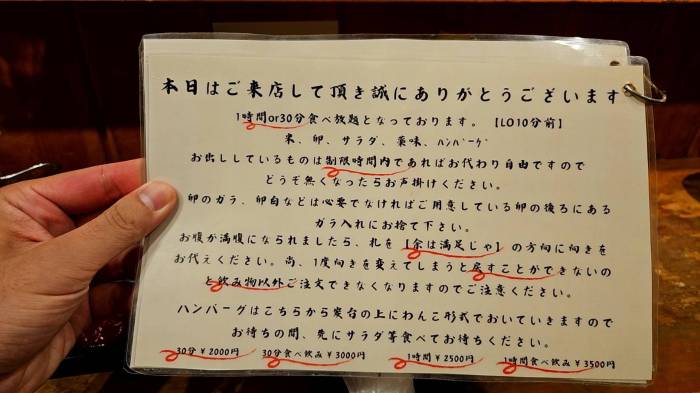 本日はご来店して頂き誠にありがとうございます
1時間or30分食べ放題となっております。【LO10分前】
米、卵、サラダ、薬味、ハンバーグ
お出ししているものは制限時間内であればお代わり自由ですので
どうぞ無くなったらお声掛けください。
卵のガラ、卵白などは必要でなければご用意している卵の後ろにある
ガラ入れにお捨て下さい。
お腹が満腹になられましたら、札を【余は満足じゃ】の方向に向きを
お代えください。尚、1度向きを変えてしまうと戻すことができないの
と飲み物以外ご注文できなくなりますのでご注意ください。
ハンバーグはこちらから家台の上にわんこ形式でおいていきますので
お待ちの間、先にサラダ等食べてお待ちください。
30分¥2000円 30分食べ飲み¥3000円 1時間¥2500円 1時間食べ飲み¥3500円